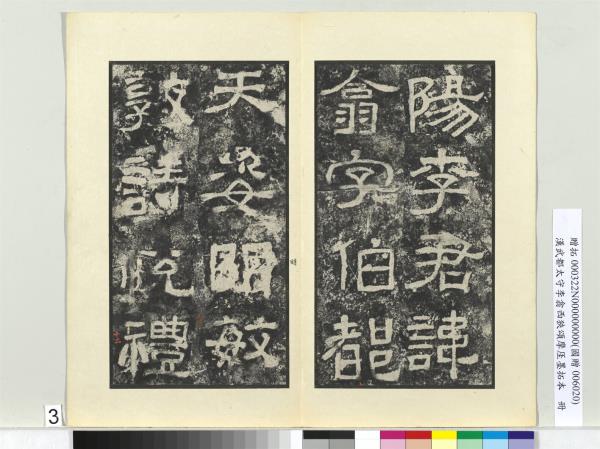 陽李君諱
翕字伯都
天姿明敏
敦詩悅禮
贈拓 000322N000000000(國贈 006020)
漢武都太守李翕西狹頌摩崖墨拓本 冊
3